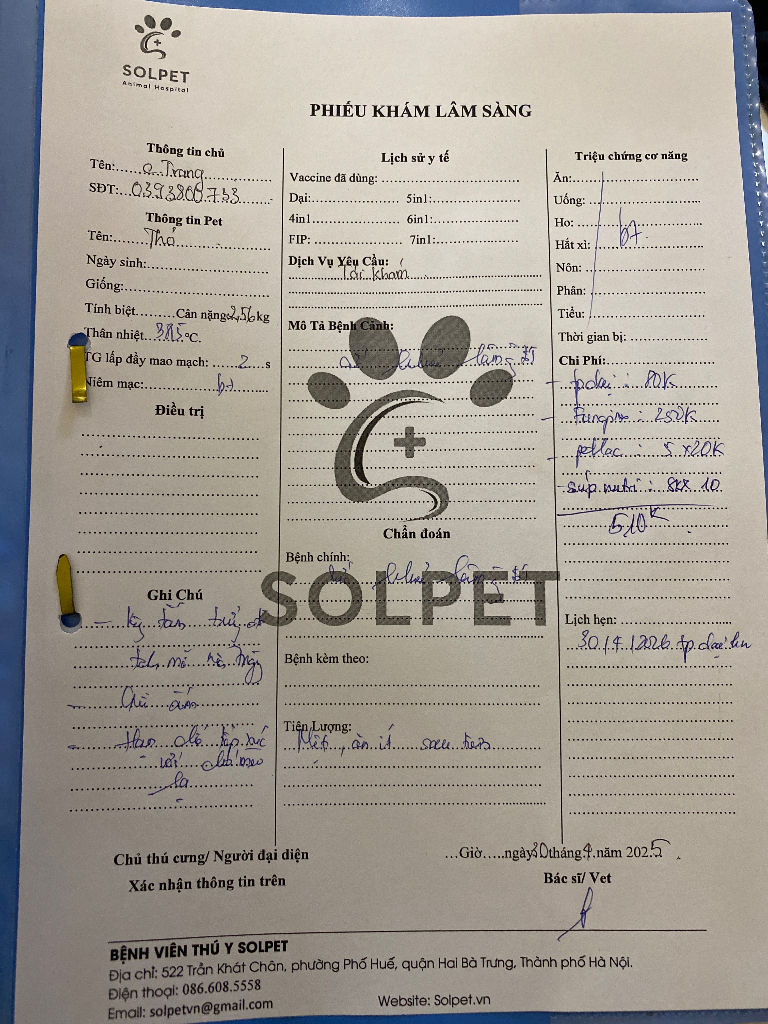 SOLPET
Animal Hospital
PHIẾU KHÁM LÂM SÀNG
Thông tin chủ
Tên: c. Trang
SĐT: 0393800.733
Thông tin Pet
Tên: Thỏ
Ngày sinh:
Giống:
Tính biệt Cân nặng: 2,56 kg
Thân nhiệt 38.5 °C.
TG lấp đầy mao mạch: 2 s
Niêm mạc: bt
Điều trị
Ghi Chú
- Kỵ tắm
- Giữ ấm
- Hạn chế tiếp xúc
với chó mèo
lạ
Lịch sử y tế
Vaccine đã dùng:
Dại: 5in1:
4in1 6in1:
FIP: 7in1:
Dịch Vụ Yêu Cầu:
Tái khám
Mô Tả Bệnh Cảnh:
lâm sàng
SOLPET
Chẩn đoán
Bệnh chính:
lâm sàng
Bệnh kèm theo:
Tiên Lượng:
Mệt, ăn ít sau tiêm
Triệu chứng cơ năng
Ăn:
Uống:
Ho:
Hắt xì: bt
Nôn:
Phân:
Tiểu:
Thời gian bị:
Chi Phí:
- tp dại : 80K
- : 250K
- petlac : 5 x 20K
- sup nutri : 8K x 10
510K
Lịch hẹn:
30/4/2026 tp dại
Chủ thú cưng/ Người đại diện
Xác nhận thông tin trên
Giờ ngày 30 tháng 4 năm 2025
Bác sĩ/ Vet
BỆNH VIÊN THÚ Y SOLPET
Địa chỉ: 522 Trần Khát Chân, phường Phố Huế, quận Hai Bà Trưng, Thành phố Hà Nội.
Điện thoại: 086.608.5558
Email: solpetvn@gmail.com Website: Solpet.vn